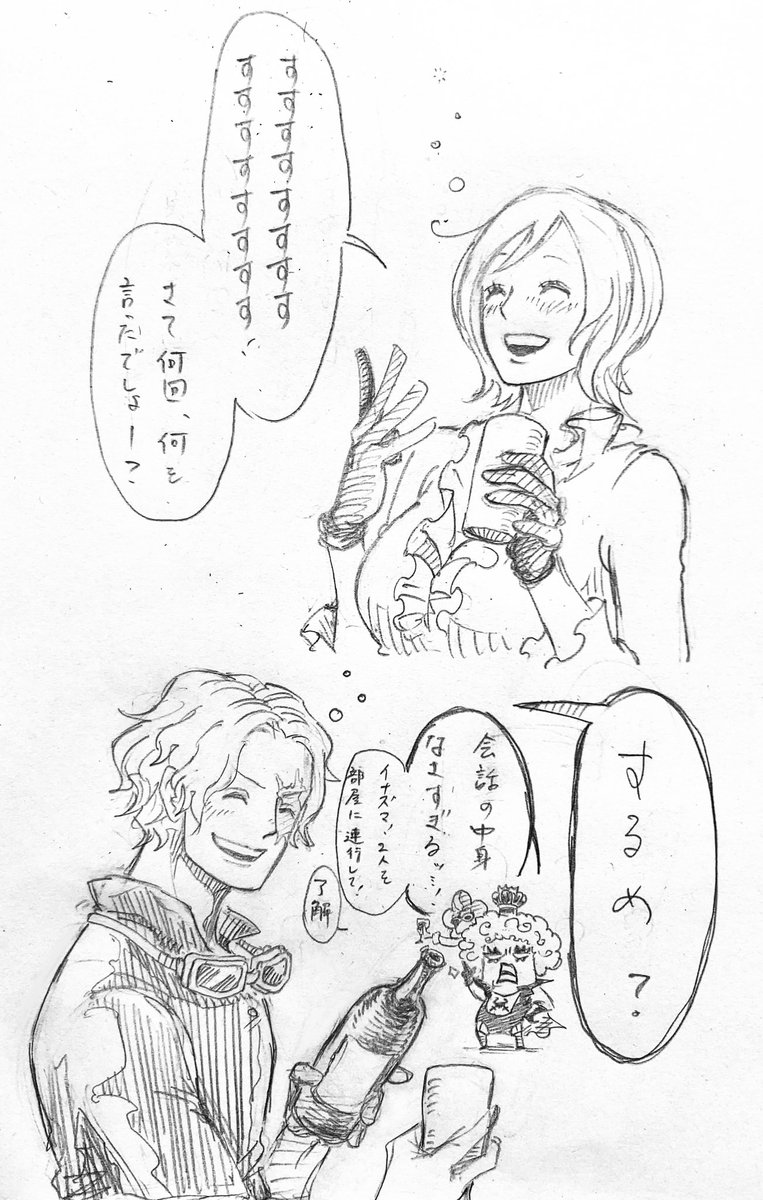 すすすすすすすす
すすすすすすすす!
さて何回、何を
言ったでしょー?
するめ?
会話の中身
なさすぎるッ…!
イナズマ!2人を
部屋に連行して!
了解